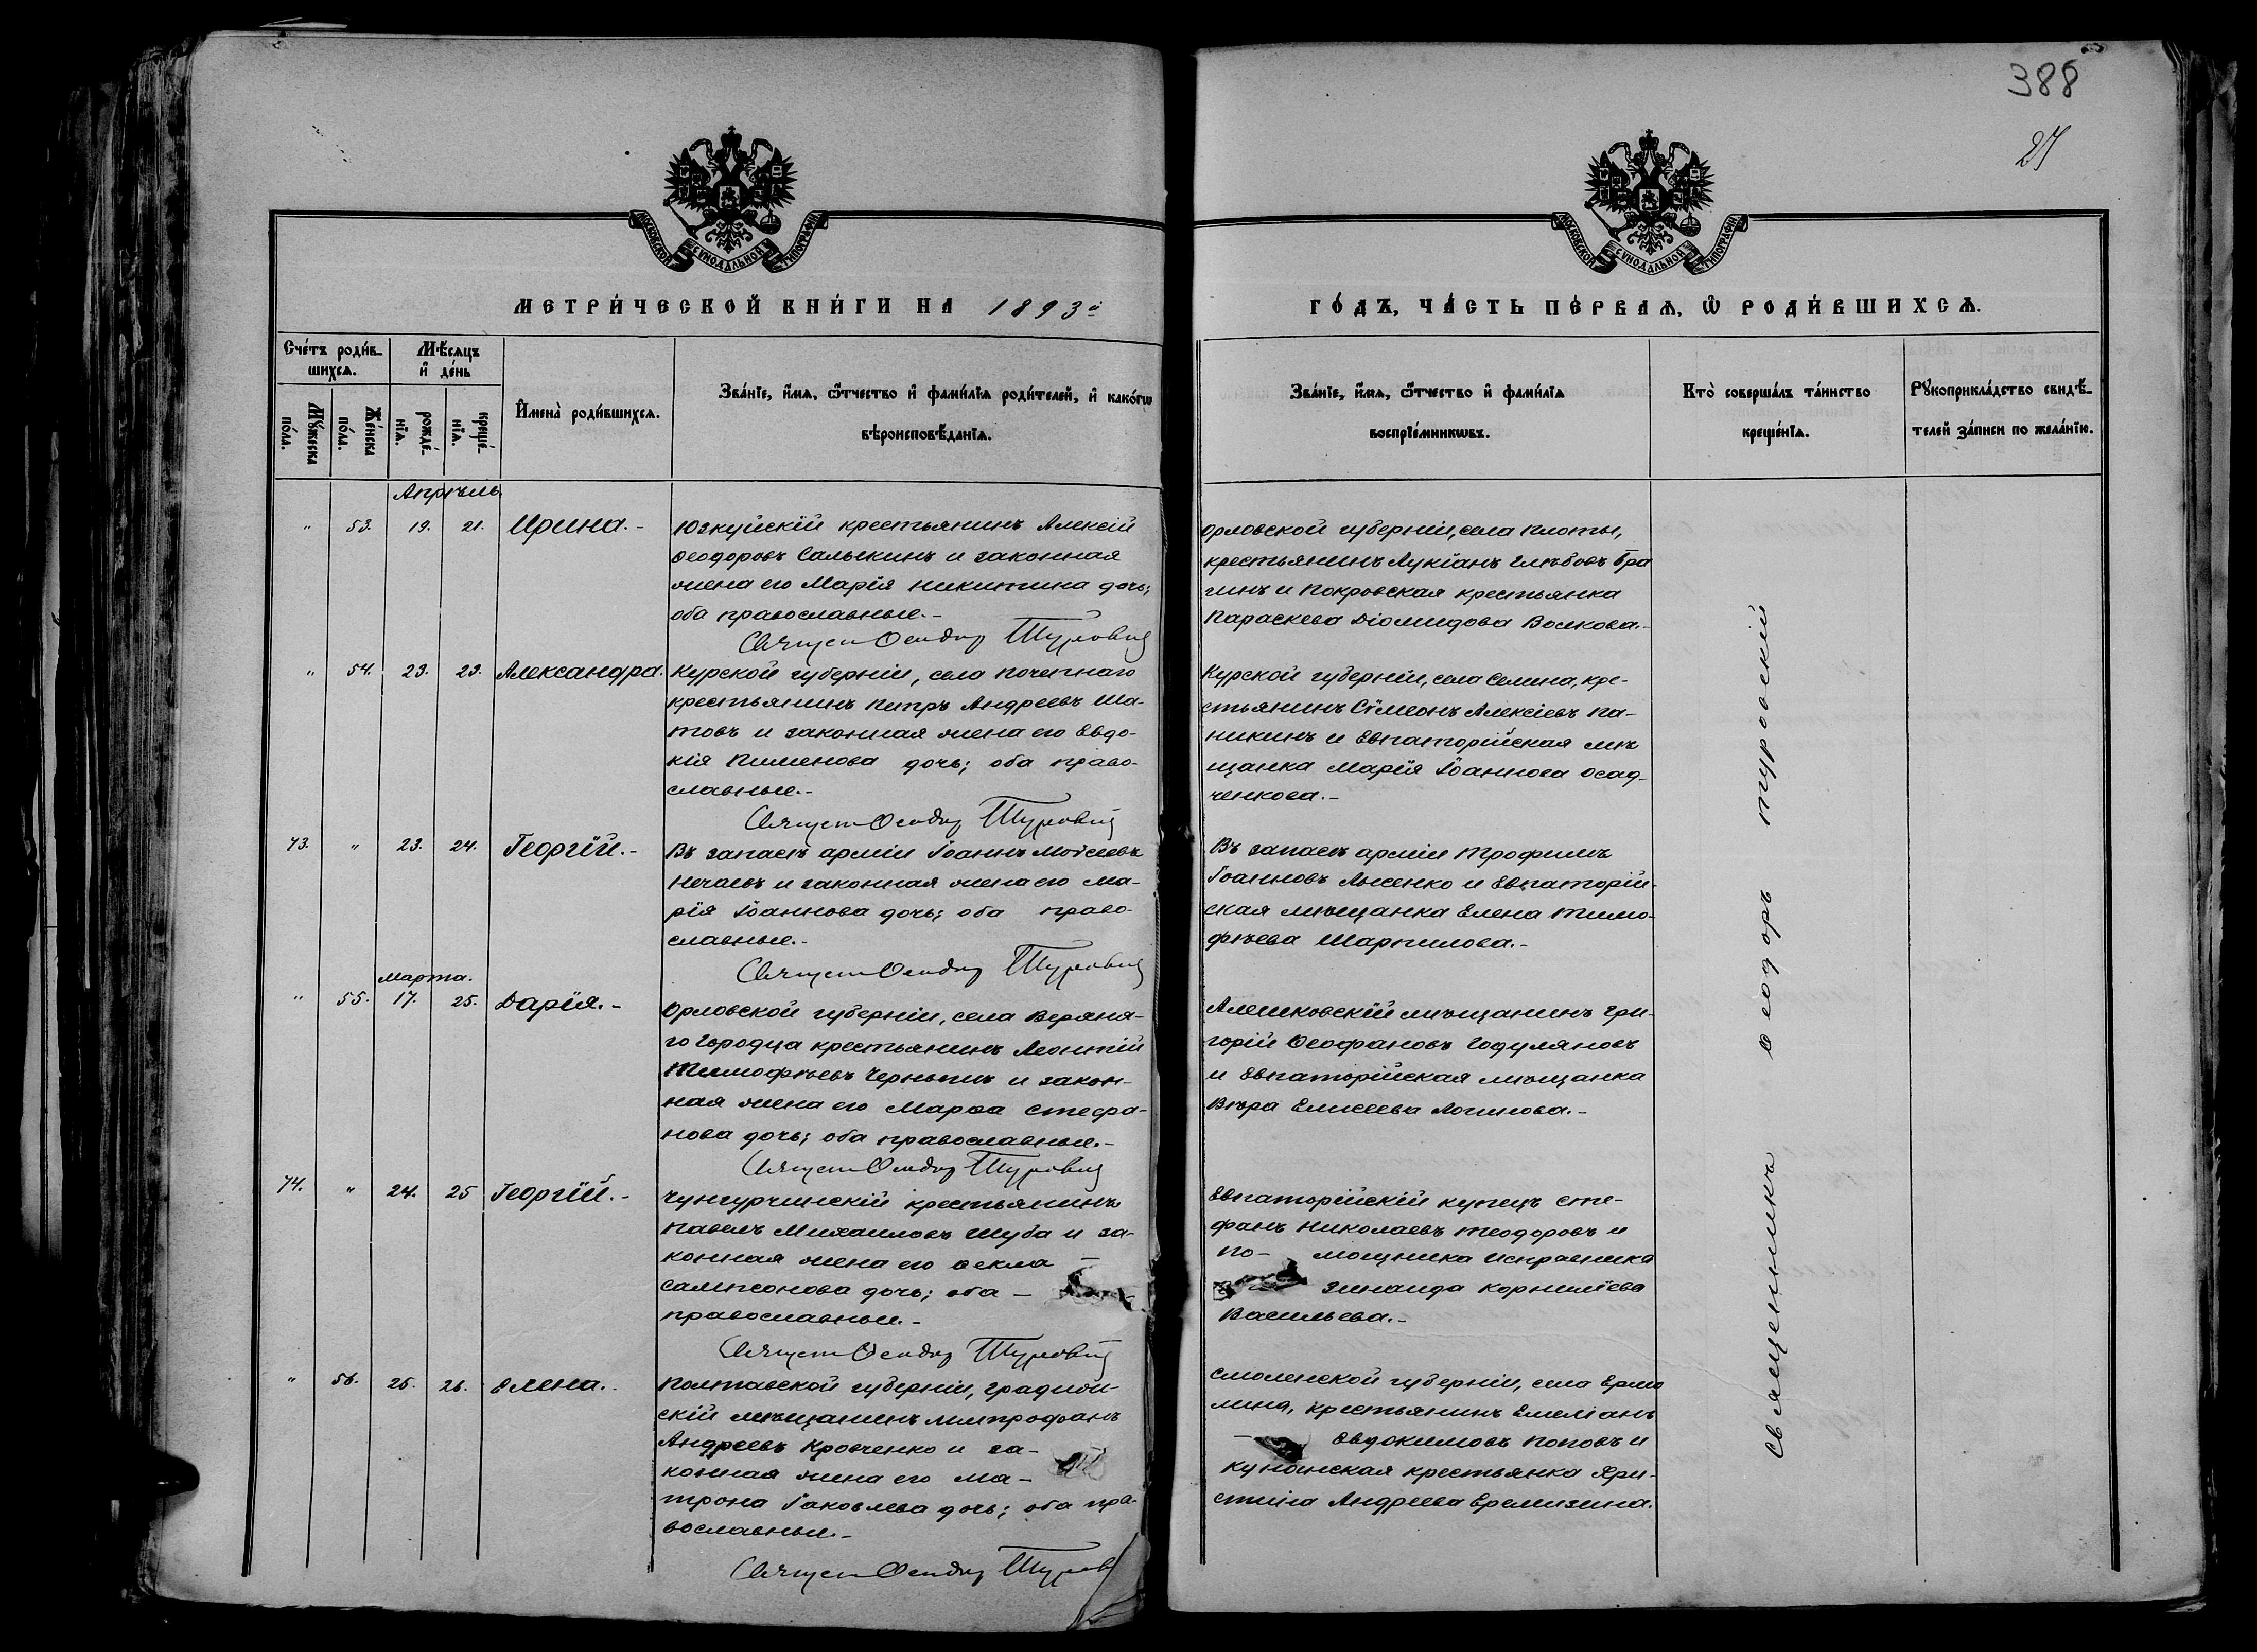 388
27
МОСКОВСКОЙ СѴНОДАЛЬНОЙ ТИПОГРАФІИ
МОСКОВСКОЙ СѴНОДАЛЬНОЙ ТИПОГРАФІИ
МЕТРИ́ЧЕСКОЙ КНИ́ГИ НА 1893й
ГО́ДЪ, ЧА́СТЬ ПЕ́РВАѦ, Ѡ҆ РОДИ́ВШИХСѦ.
Сче́тъ роди́в-
шихсѧ.
Мꙋ́жеска по́ла.
Же́нска по́ла.
Мѣ́сѧцъ
и҆ де́нь
рожде́-
нїѧ.
креще́-
нїѧ.
И҆мена̀ роди́вшихсѧ.
Зва́нїе, и҆́мѧ, ѻ҆́тчество и҆ фами́лїѧ роди́телей, и҆ како́гѡ
вѣроисповѣ́данїѧ.
Зва́нїе, и҆́мѧ, ѻ҆́тчество и҆ фами́лїѧ
воспрїе́мникѡвъ.
Кто̀ соверша́лъ та́инство
креще́нїѧ.
Рꙋкоприкла́дство свидѣ́-
телей за́писи по жела́нїю.
Апрѣль
" 53. 19. 21. Ирина.-
Юзкуйскій крестьянинъ Алексій
Ѳеодоровъ Салыкинъ и законная
жена его Марія Никитина дочь;
оба православные.-
Священ Ѳеодор Туровскій
Орловской губерніи, села Плоты,
крестьянинъ Лукіанъ Глѣбовъ Бра
гинъ и Покровская крестьянка
Параскева Діомидова Волкова.-
" 54. 23. 23. Александра.
Курской губерніи, села Почепнаго
крестьянинъ Петръ Андреевъ Ша-
товъ и законная жена его Евдо-
кія Пименова дочь; оба право-
славные.-
Священ Ѳеодор Туровскій
Курской губерніи, села Селина, кре-
стьянинъ Сѵмеонъ Алексіевъ Па-
никинъ и Евпаторійская мѣ
щанка Марія Іоаннова Осад-
ченкова.-
73. " 23. 24. Георгій.-
Въ запасѣ арміи Іоаннъ Моѵсеевъ
Нечаевъ и законная жена его Ма-
рія Іоаннова дочь; оба право-
славные.-
Священ Ѳеодор Туровскій
Въ запасѣ арміи Трофимъ
Іоанновъ Лысенко и Евпаторій-
ская мѣщанка Елена Тимо-
фѣева Шарпилова.-
Марта.
" 55. 17. 25. Дарія.-
Орловской губерніи, села Верхня-
го Городца крестьянинъ Леонтій
Тимофѣевъ Черныхъ и закон-
ная жена его Марѳа Стефа-
нова дочь; оба православные.-
Священ Ѳеодор Туровскій
Алешковскій мѣщанинъ Гри-
горій Ѳеофановъ Годуляновъ
и Евпаторійская мѣщанка
Вѣра Елисеева Логинова.-
74. " 24. 25 Георгій.-
Чунгурчинскій крестьянинъ
Павелъ Михаиловъ Шуба и за-
конная жена его Ѳекла
Сампсонова дочь; оба -
православные.-
Священ Ѳеодор Туровскій
Евпаторійскій купецъ Сте-
фанъ Николаевъ Теодоровъ и
по- мощника Исправника
Зинаида Корниліева
Васильева.-
" 56. 25. 26. Елена.-
Полтавской губерніи, Градиж-
скій мѣщанинъ Митрофанъ
Андреевъ Кровченко и за-
конная жена его Ма-
трона Іаковлева дочь; оба пра-
вославные.-
Священ Ѳеодор Туров
Смоленской губерніи, села Ермо
лина, крестьянинъ Емеліанъ
- Евдокимовъ Поповъ и
крестьянка Хри-
стина Андреева Еремизина.
Священникъ Ѳеодоръ Туровскій